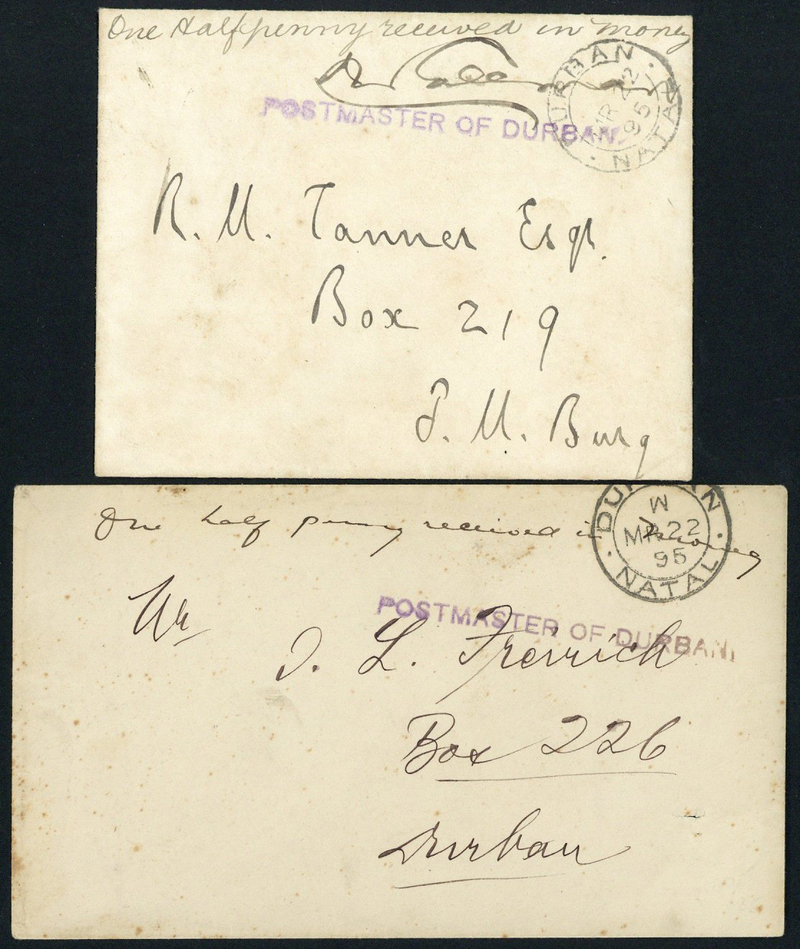 One Halfpenny received in money
POSTMASTER OF DURBAN.
DURBAN
MR 22
95
NATAL
R. M. Tanner Esqr.
Box 219
P. M. Burg
One half penny received in money
DURBAN
W
MR 22
95
NATAL
Mr
POSTMASTER OF DURBAN.
J. L. Frerrich
Box 226
Durban